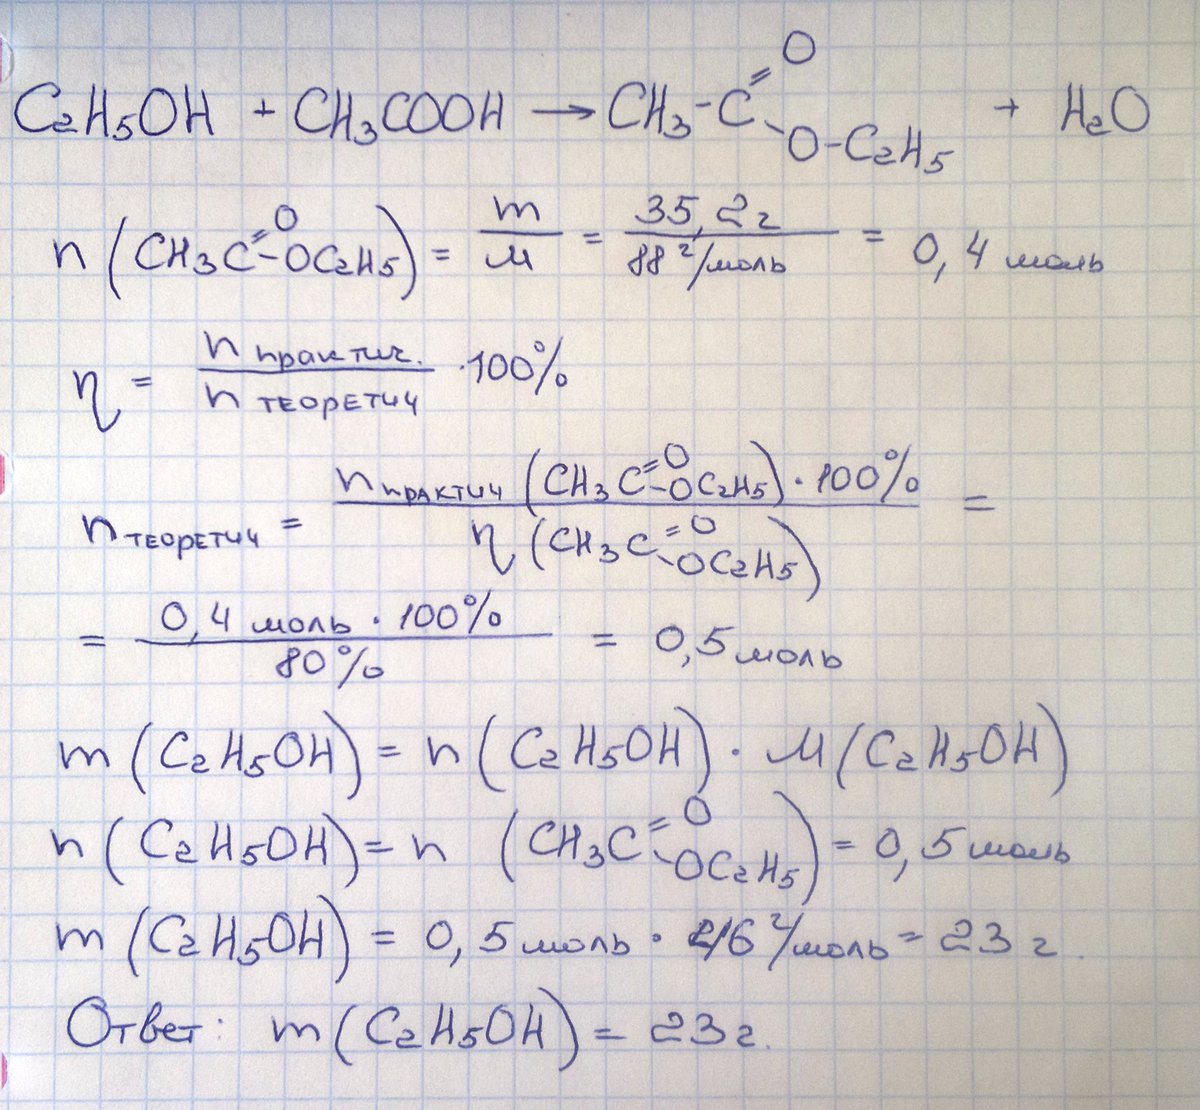 C₂H₅OH + CH₃COOH → CH₃-C(=O)-O-C₂H₅ + H₂O
n(CH₃C(=O)-OC₂H₅) = m/M = 35,2г/88 г/моль = 0,4 моль
η = n практич. / n теоретич · 100%
n теоретич = n практич (CH₃C(=O)-OC₂H₅) · 100% / η (CH₃C(=O)-OC₂H₅) =
= 0,4 моль · 100% / 80% = 0,5 моль
m(C₂H₅OH) = n(C₂H₅OH) · M(C₂H₅OH)
n(C₂H₅OH) = n (CH₃C(=O)-OC₂H₅) = 0,5 моль
m(C₂H₅OH) = 0,5 моль · 46 г/моль = 23 г.
Ответ: m(C₂H₅OH) = 23 г.